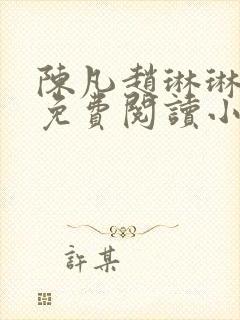 陳凡趙琳琳
免費閱讀小
許某